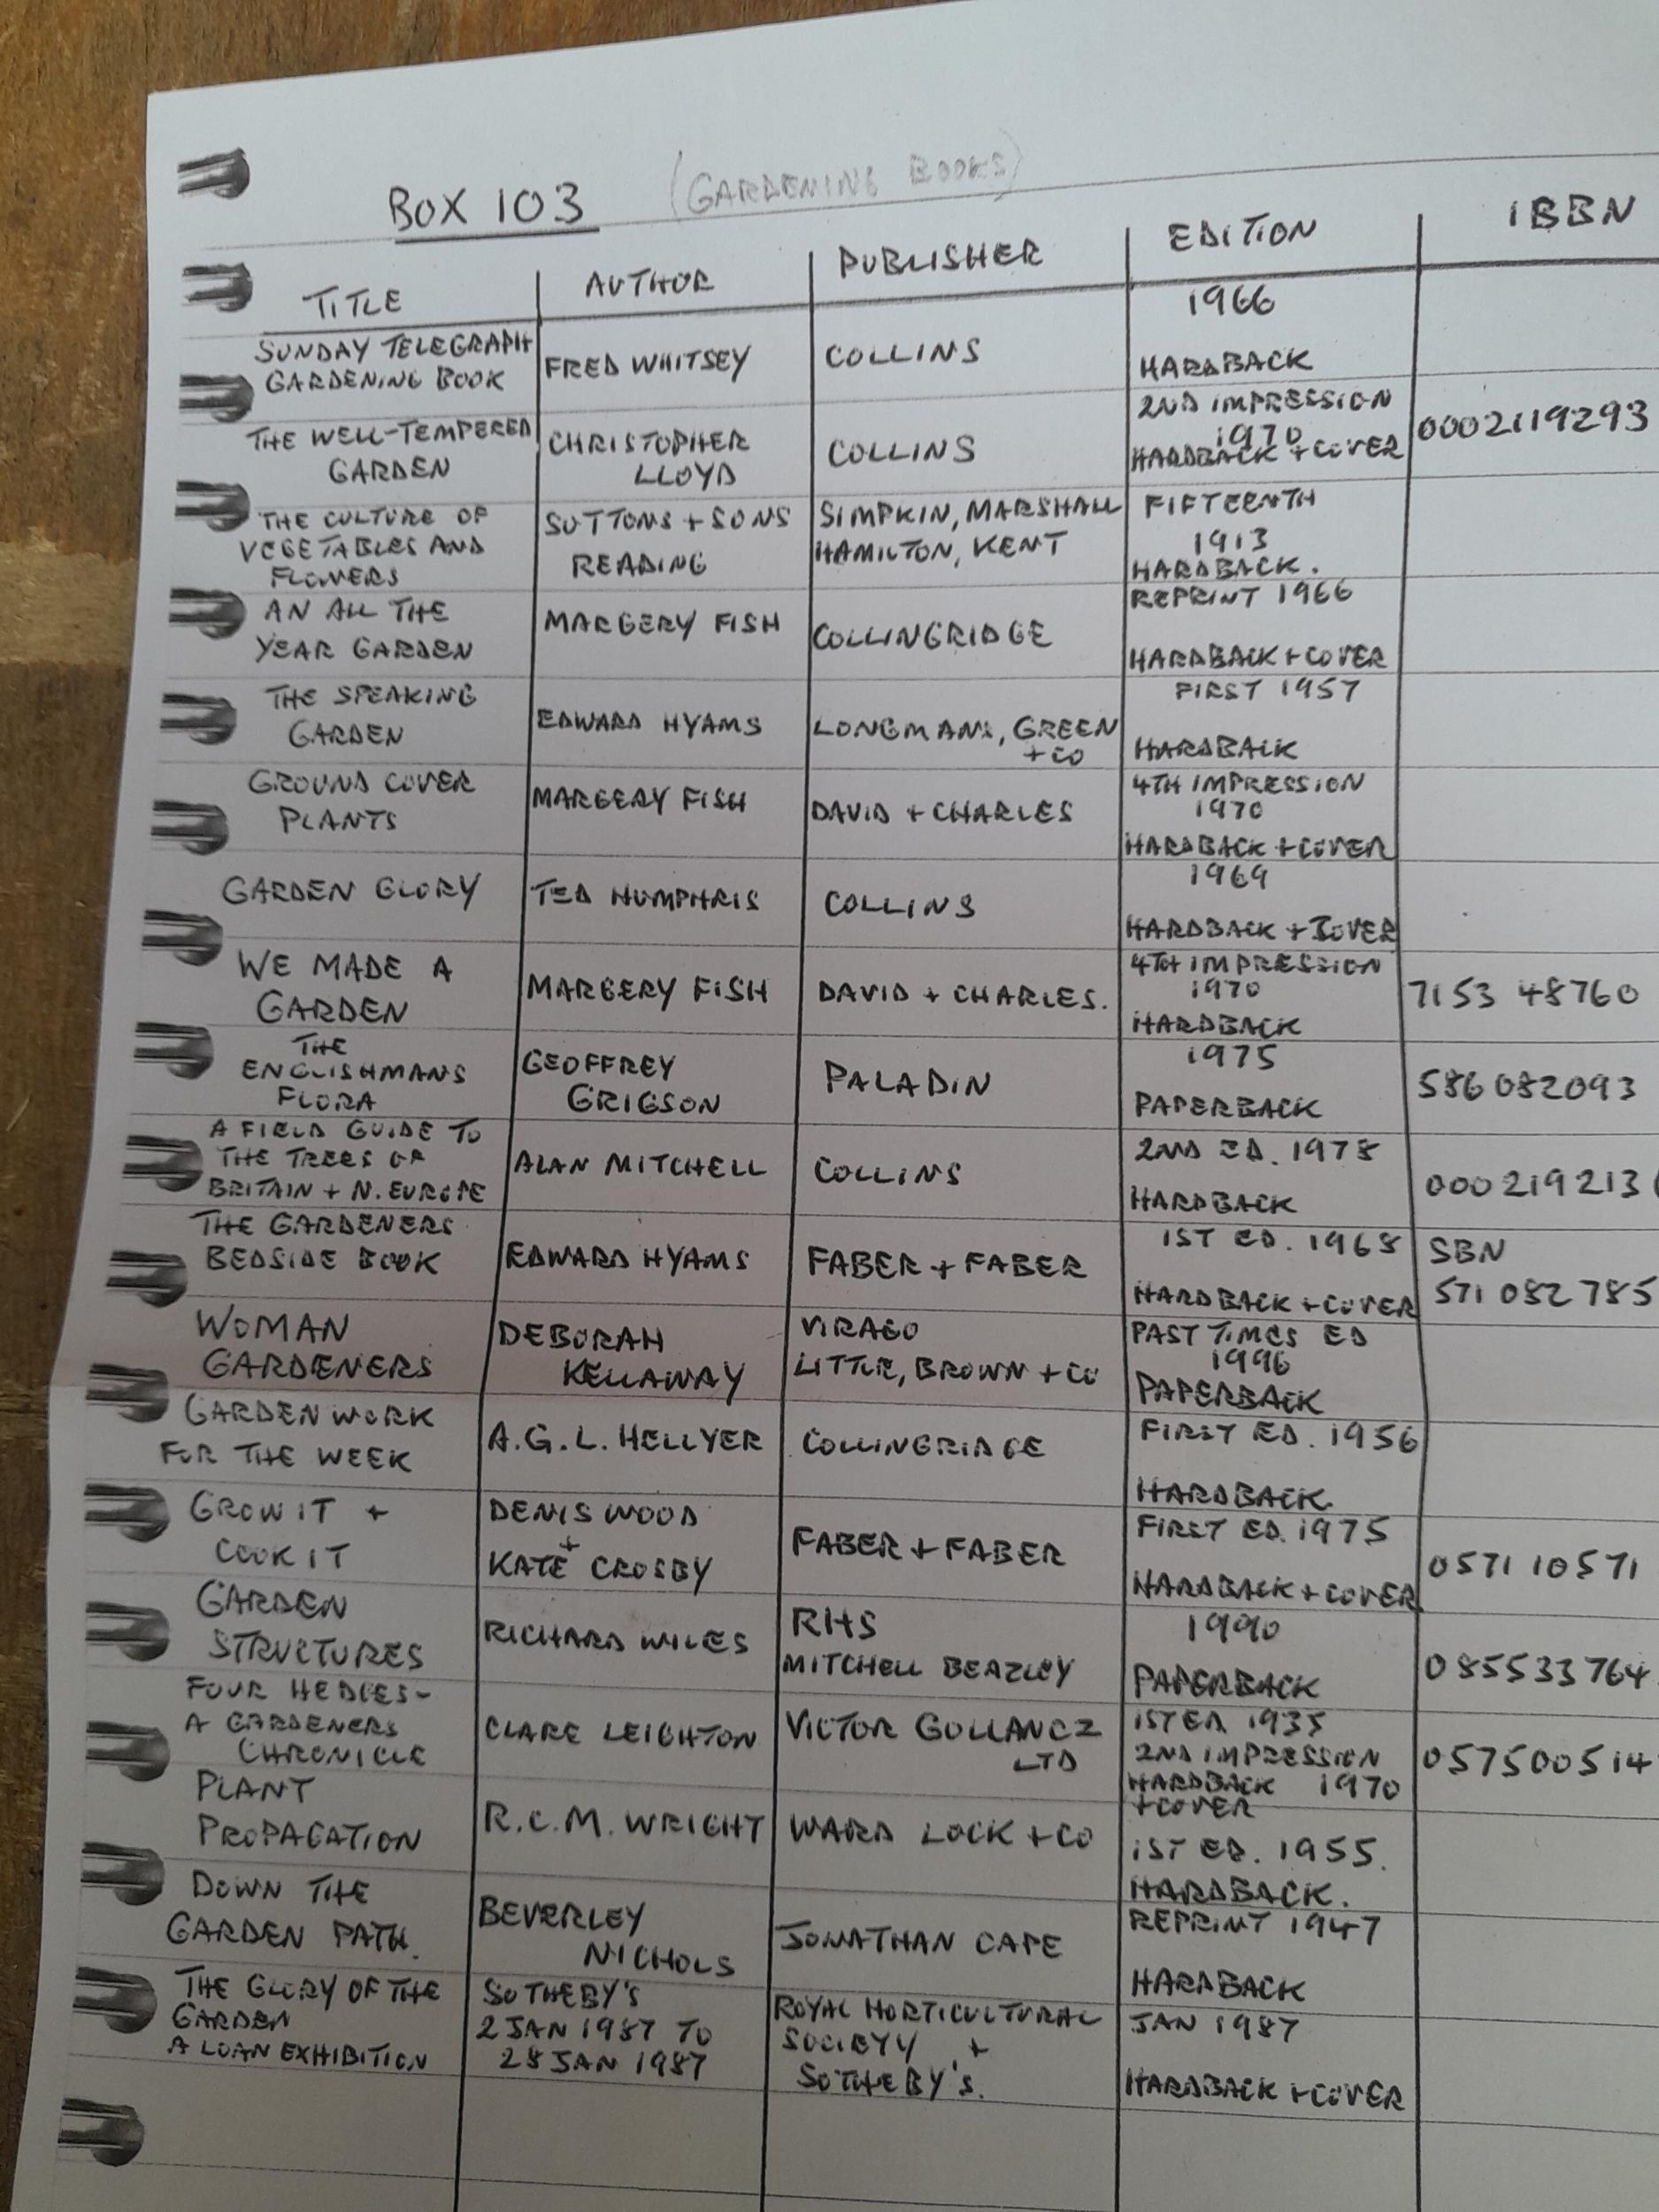 BOX 103 (GARDENING BOOKS)
TITLE AUTHOR PUBLISHER EDITION IBBN
SUNDAY TELEGRAPH
GARDENING BOOK
FRED WHITSEY
COLLINS
1966
HARDBACK
THE WELL-TEMPERED
GARDEN
CHRISTOPHER
LLOYD
COLLINS
2ND IMPRESSION
1970
HARDBACK + COVER
0002119293
THE CULTURE OF
VEGETABLES AND
FLOWERS
SUTTONS + SONS
READING
SIMPKIN, MARSHALL
HAMILTON, KENT
FIFTEENTH
1913
HARDBACK.
AN ALL THE
YEAR GARDEN
MARGERY FISH
COLLINGRIDGE
REPRINT 1966
HARDBACK + COVER
THE SPEAKING
GARDEN
EDWARD HYAMS
LONGMANS, GREEN
+ CO
FIRST 1957
HARDBACK
GROUND COVER
PLANTS
MARGERY FISH
DAVID + CHARLES
4TH IMPRESSION
1970
HARDBACK + COVER
GARDEN GLORY
TED HUMPHRIS
COLLINS
1969
HARDBACK + COVER
WE MADE A
GARDEN
MARGERY FISH
DAVID + CHARLES.
4TH IMPRESSION
1970
HARDBACK
7153 48760
THE
ENGLISHMANS
FLORA
GEOFFREY
GRIGSON
PALADIN
1975
PAPERBACK
586 082093
A FIELD GUIDE TO
THE TREES OF
BRITAIN + N. EUROPE
ALAN MITCHELL
COLLINS
2ND ED. 1978
HARDBACK
000219213
THE GARDENERS
BEDSIDE BOOK
EDWARD HYAMS
FABER + FABER
1ST ED. 1968
HARDBACK + COVER
SBN
571 082 785
WOMAN
GARDENERS
DEBORAH
KELLAWAY
VIRAGO
LITTLE, BROWN + CO
PAST TIMES ED
1996
PAPERBACK
GARDEN WORK
FOR THE WEEK
A.G.L. HELLYER
COLLINGRIDGE
FIRST ED. 1956
HARDBACK.
GROW IT +
COOK IT
DENIS WOOD
+
KATE CROSBY
FABER + FABER
FIRST ED. 1975
HARDBACK + COVER
0571 10571
GARDEN
STRUCTURES
RICHARD WILES
RHS
MITCHELL BEAZLEY
1990
PAPERBACK
085533764
FOUR HEDGES-
A GARDENERS
CHRONICLE
CLARE LEIGHTON
VICTOR GOLLANCZ
LTD
1ST ED. 1935
2ND IMPRESSION
HARDBACK 1970
+ COVER
057500514
PLANT
PROPAGATION
R.C.M. WRIGHT
WARD LOCK + CO
1ST ED. 1955.
HARDBACK.
DOWN THE
GARDEN PATH.
BEVERLEY
NICHOLS
JONATHAN CAPE
REPRINT 1947
HARDBACK
THE GLORY OF THE
GARDEN
A LOAN EXHIBITION
SOTHEBY'S
2 JAN 1987 TO
28 JAN 1987
ROYAL HORTICULTURAL
SOCIETY +
SOTHEBY'S.
JAN 1987
HARDBACK + COVER